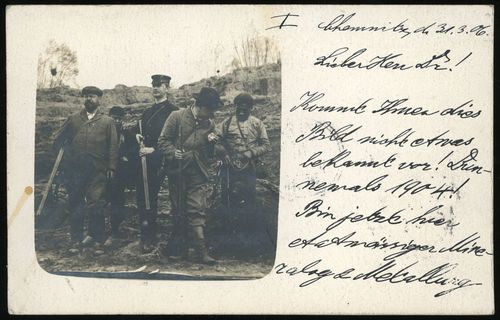 I
Chemnitz, d. 31.3.06.
Lieber Herr Dr.!
Kommt Ihnen dies
Bild nicht etwas
bekannt vor! Dün-
nemals 1904!
Bin jetzt hier
etatmässiger Mine-
ralog & Metallurg